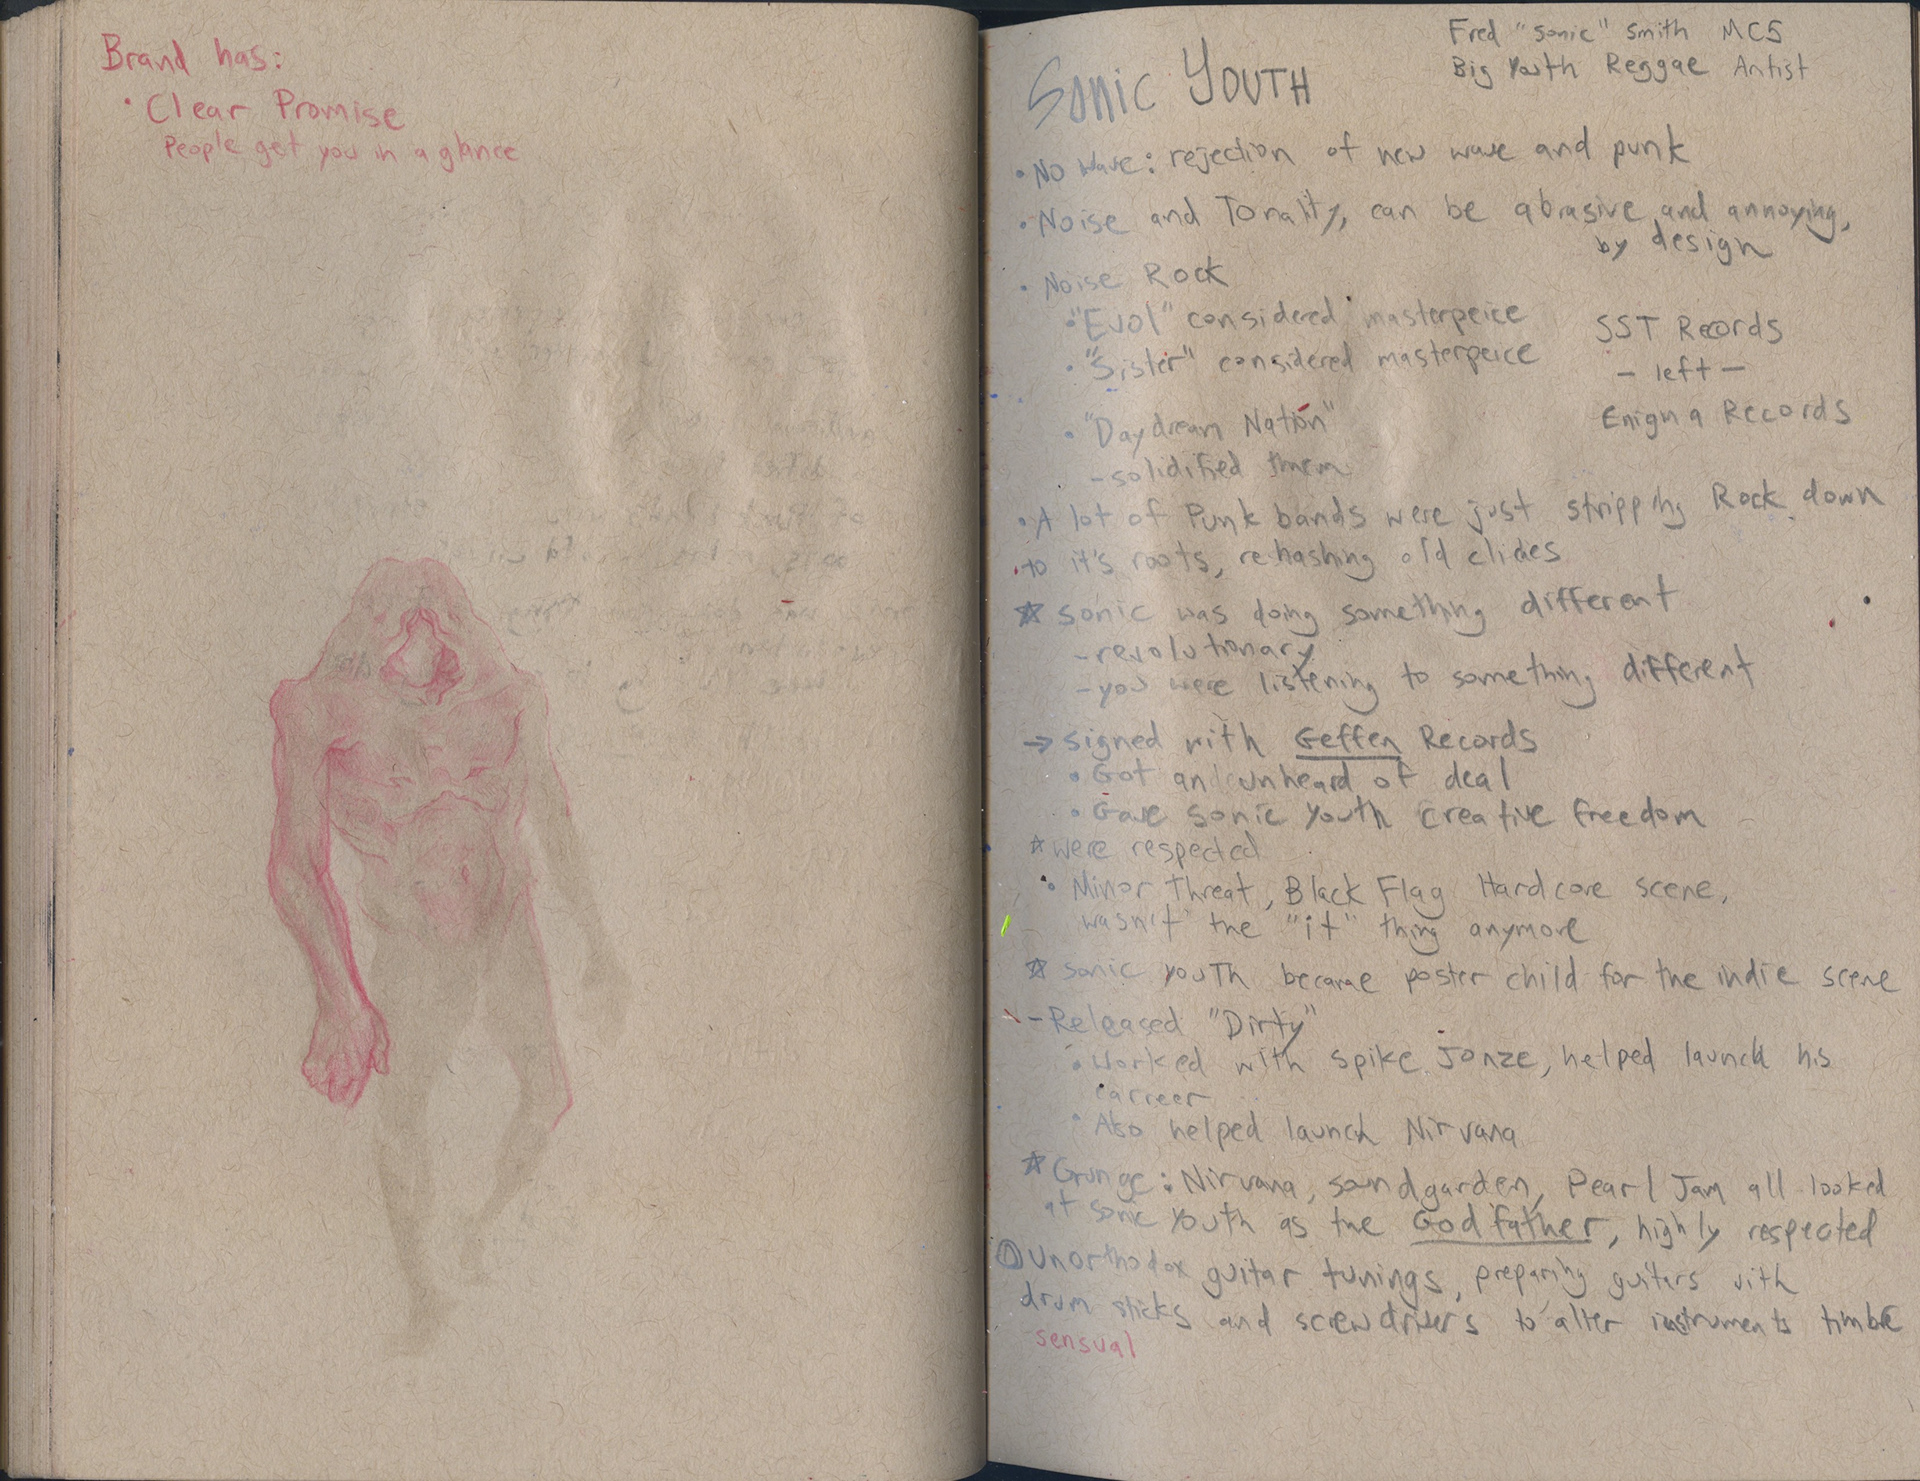 Brand has:
• Clear Promise
People get you in a glance
Fred "Sonic" Smith MC5
Big Youth Reggae Artist
SONIC YOUTH
• No Wave: rejection of new wave and punk
• Noise and Tonality, can be abrasive and annoying,
by design
• Noise Rock
• "Evol" considered masterpeice
• "Sister" considered masterpeice
SST Records
- left -
Enigma Records
• "Daydream Nation"
- solidified them
• A lot of Punk bands were just stripping Rock down
to it's roots, rehashing old cliches
☆ Sonic was doing something different
- revolutionary
- you were listening to something different
→ signed with Geffen Records
• Got an unheard of deal
• Gave Sonic Youth creative freedom
☆ were respected
• Minor Threat, Black Flag Hardcore scene,
wasn't the "it" thing anymore
☆ Sonic Youth became poster child for the indie scene
- Released "Dirty"
• Worked with Spike Jonze, helped launch his
carreer
• Also helped launch Nirvana
☆ Grunge: Nirvana, Soundgarden, Pearl Jam all looked
at Sonic Youth as the Godfather, highly respected
Unorthodox guitar tunings, preparing guitars with
drum sticks and screwdrivers to alter instruments timbre
sensual